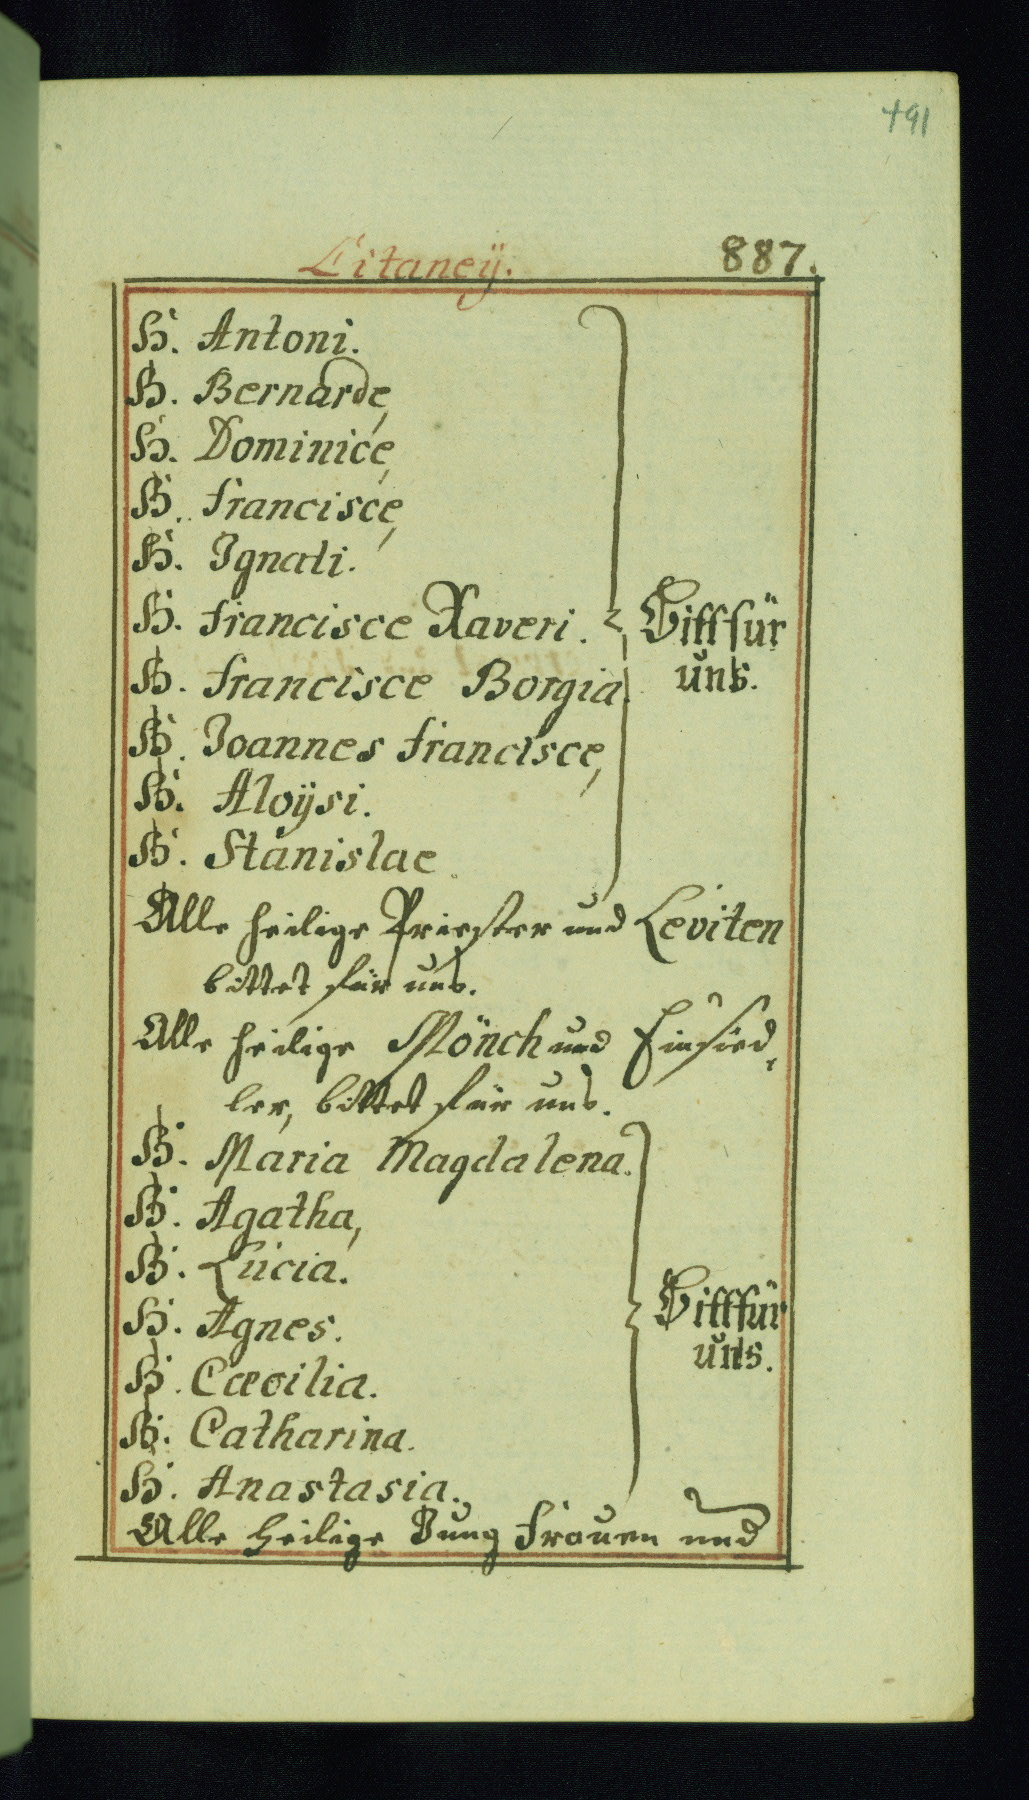 491
Litaneÿ. 887.
H. Antoni.
H. Bernarde,
H. Dominice,
H. Francisce,
H. Ignati.
H. Francisce Xaveri. Bitt für
uns.
H. Francisce Borgia.
H. Joannes Francisce,
H. Aloÿsi.
H. Stanislae.
Alle heilige Priester und Leviten
bittet für uns.
Alle heilige Mönch und Einsied,
ler, bittet für uns.
H. Maria Magdalena.
H. Agatha,
H. Lucia.
H. Agnes. Bitt für
uns.
H. Cæcilia.
H. Catharina.
H. Anastasia.
Alle Heilige Jung Frauen und